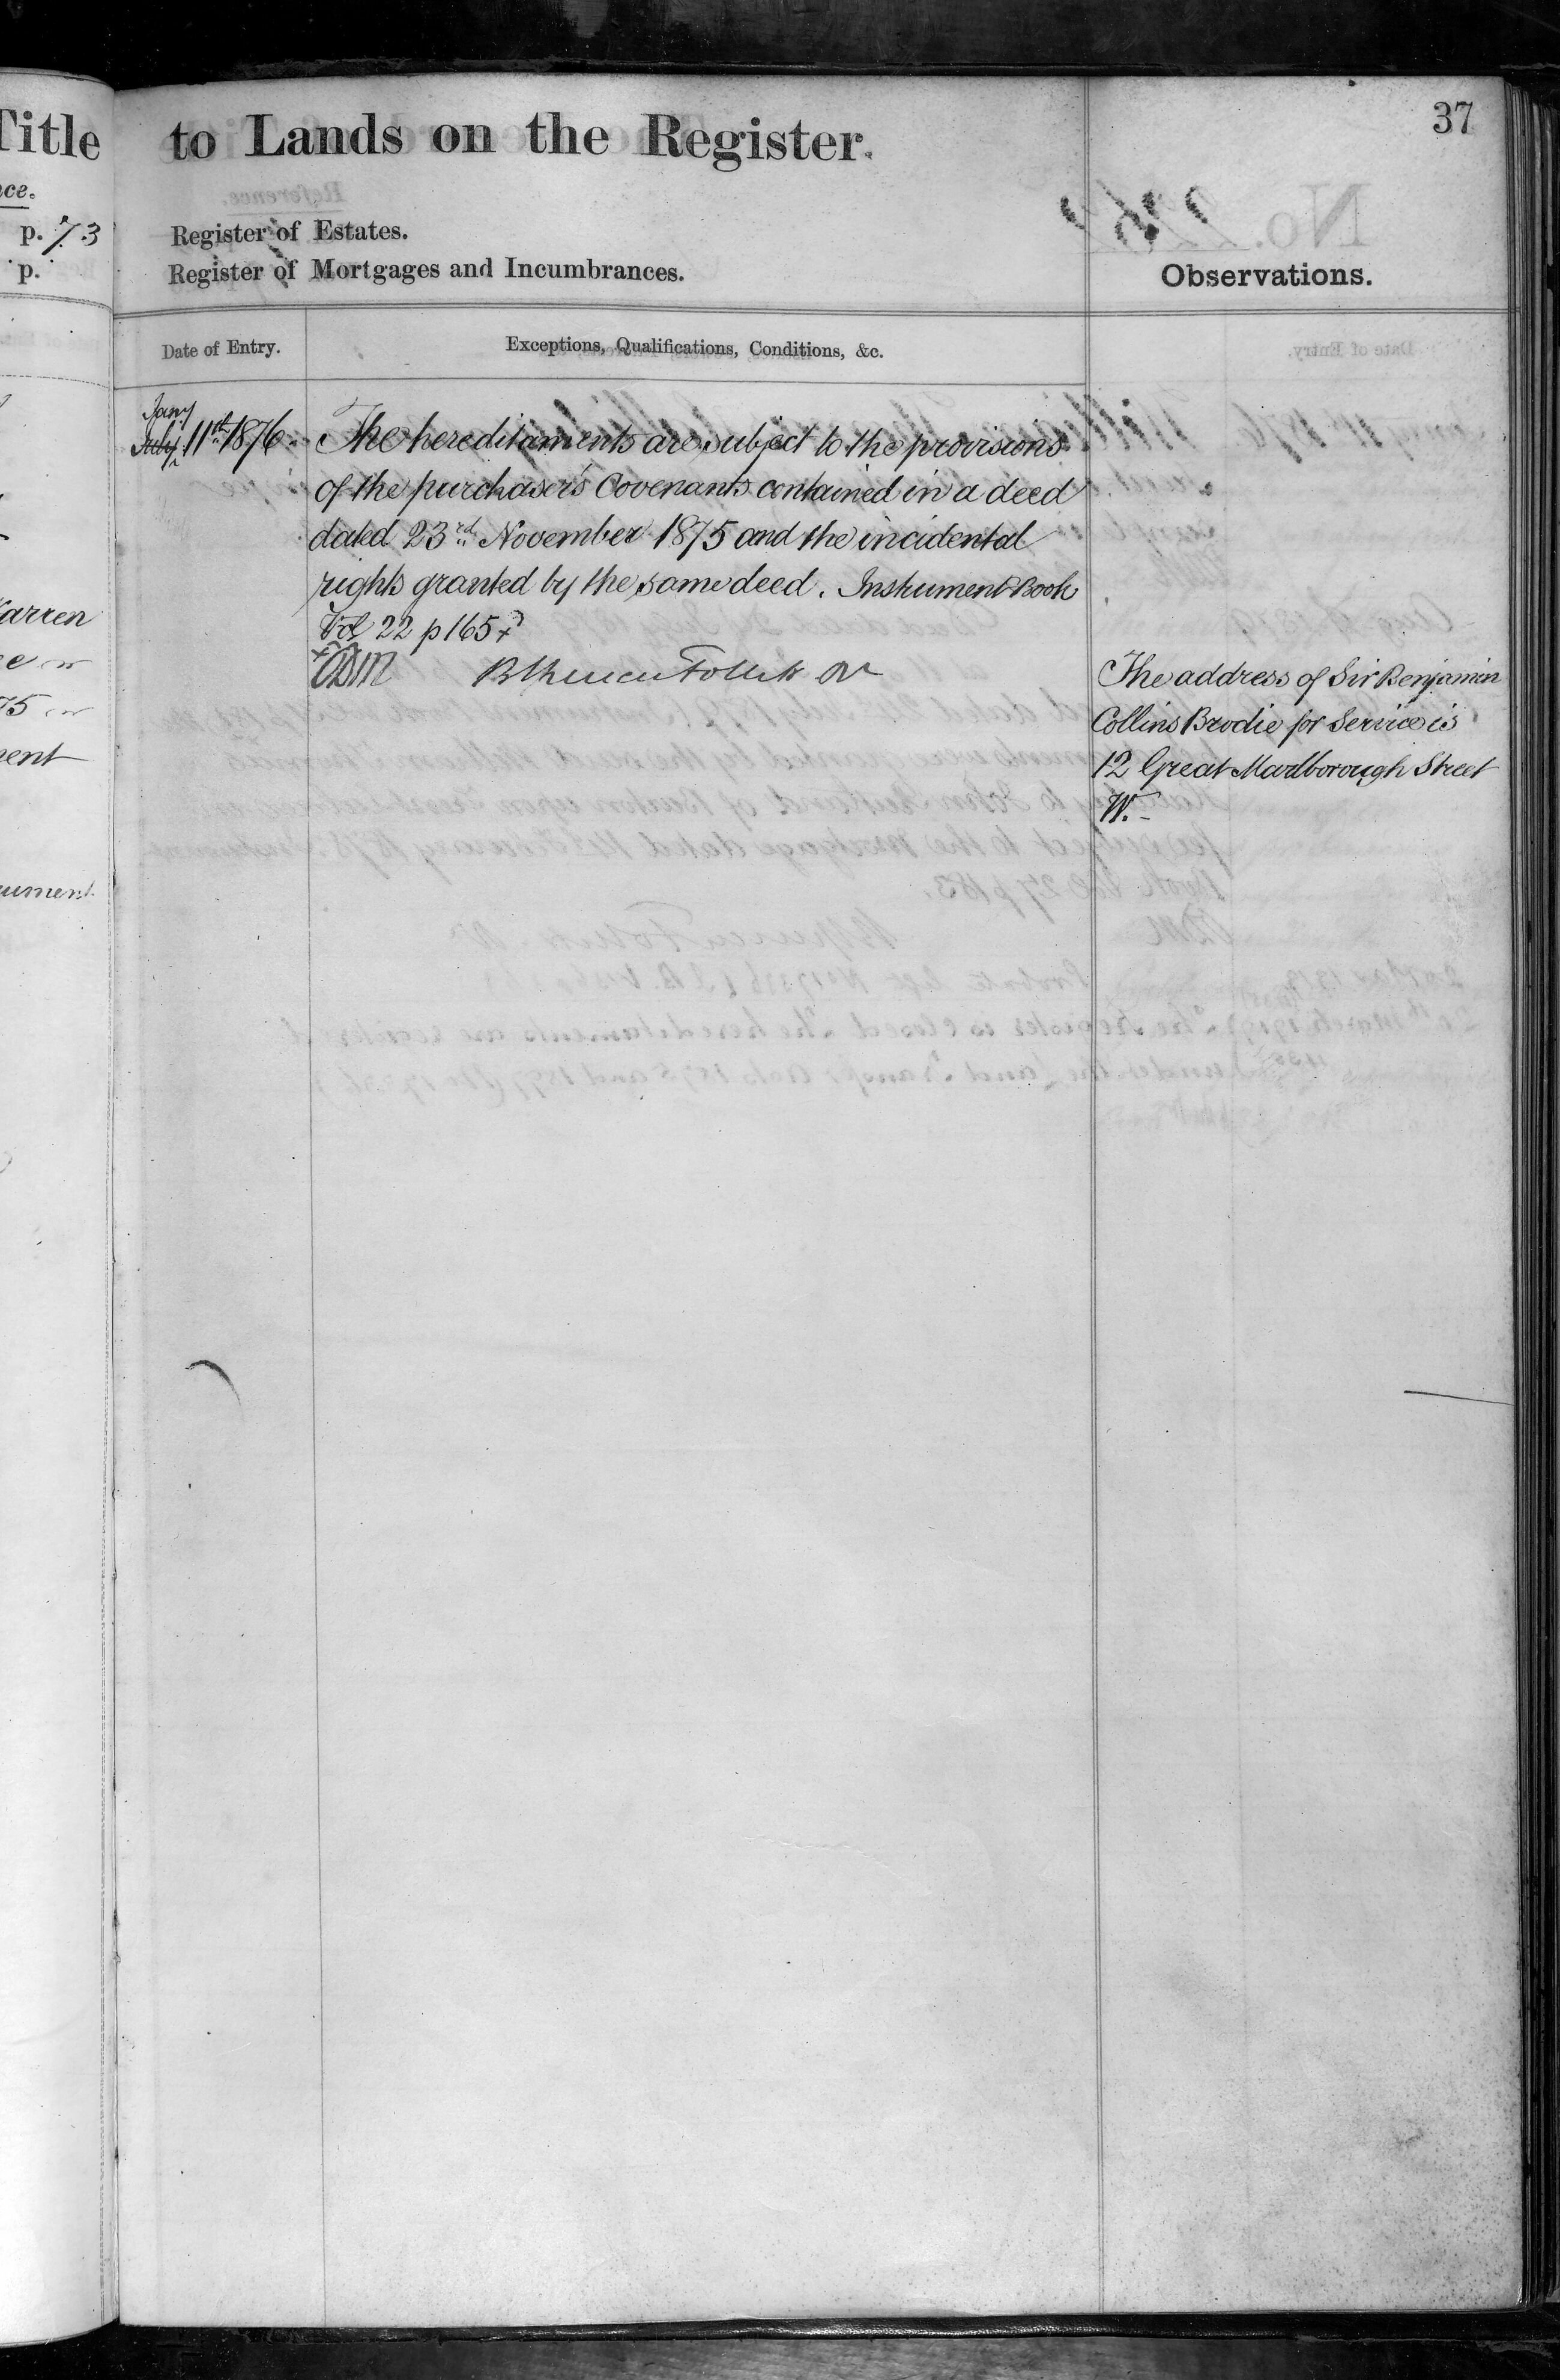 Title to Lands on the Register.
37
ce.
p. 73
p.
Register of Estates.
Register of Mortgages and Incumbrances.
Observations.
Date of Entry.
Exceptions, Qualifications, Conditions, &c.
Jany
July 11th 1876.
The hereditaments are subject to the provisions
of the purchaser's Covenants contained in a deed
dated 23rd November 1875 and the incidental
rights granted by the same deed. Instrument Book
Vol 22 p 165
The address of Sir Benjamin
Collins Brodie for Service is
12 Great Marlborough Street
W.
arren
75
ent
ument